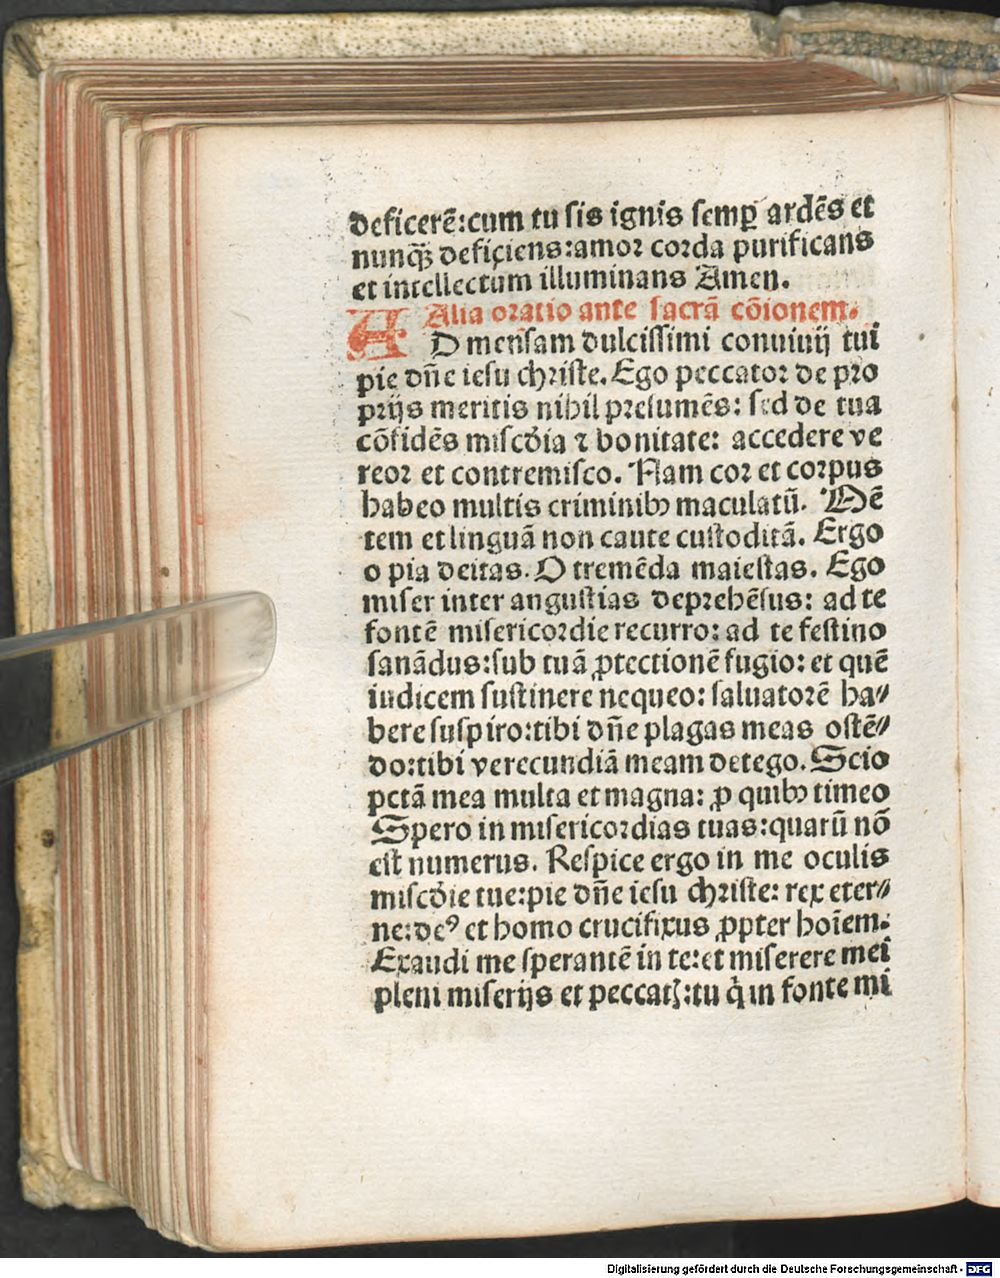 deficerē:cum tu ſis ignis ſemꝑ ardēs et
nunqͣꝫ deficiens:amoꝛ corda purificans
et intellectum illuminans Amen.
Alia oꝛatio ante ſacrā cōionem.
AD menſam dulciſſimi conuiuij tui
pie dñe ieſu chꝛiſte. Ego peccatoꝛ de pꝛo
pꝛijs meritis nihil pꝛeſumēs: ſed de tua
cōfidēs miſcďia ⁊ bonitate: accedere ve
reoꝛ et contremiſco. Nam coꝛ et coꝛpus
habeo multis criminibꝰ maculatū. Mē
tem et linguā non caute cuſtoditā. Ergo
o pia deitas. O tremēda maieſtas. Ego
miſer inter anguſtias depꝛehēſus: ad te
fontē miſericoꝛdie recurro: ad te feſtino
ſanādus:ſub tuā ꝓtectionē fugio: et quē
iudicem ſuſtinere nequeo: ſaluatoꝛē ha⸗
bere ſuſpiro:tibi dñe plagas meas oſtē⸗
do:tibi verecundiā meam detego. Scio
pctā mea multa et magna: ꝓ quibꝰ timeo
Spero in miſericoꝛdias tuas:quarū nō
eſt numerus. Reſpice ergo in me oculis
miſcďie tue:pie dñe ieſu chꝛiſte: rex eter⸗
ne:deꝰ et homo crucifixus ꝓpter hoiēm.
Exaudi me ſperantē in te:et miſerere mei
pleni miſerijs et peccatꝭ:tu q̇ in fonte mi
Digitalisierung gefördert durch die Deutsche Forschungsgemeinschaft - DFG